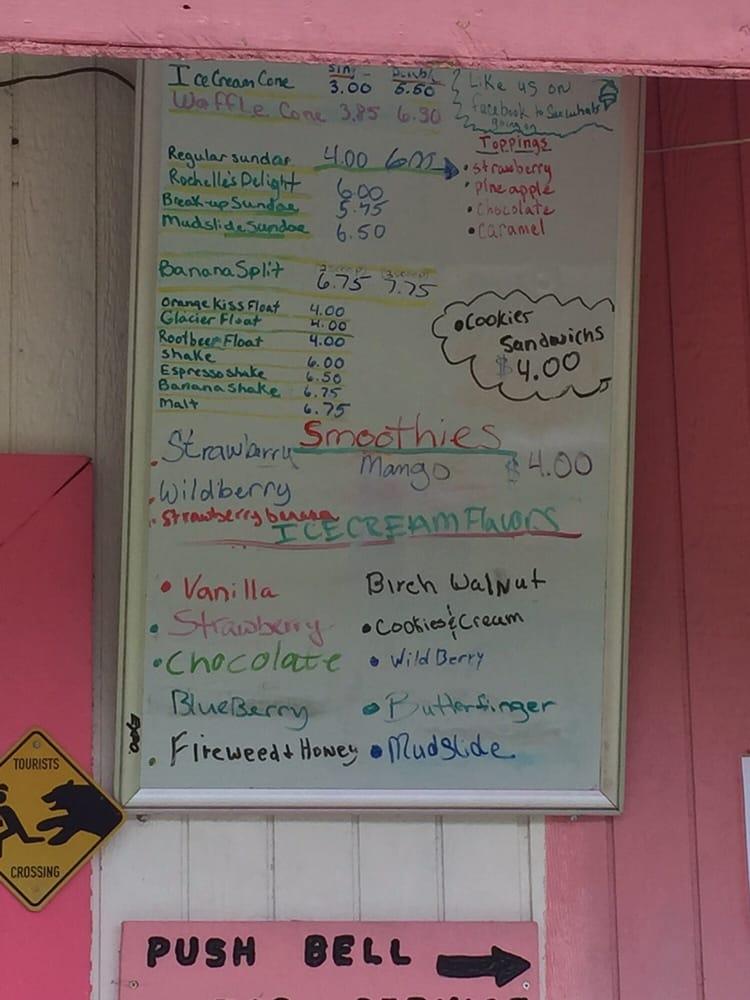 Ice Cream Cone 3.00 5.50
Waffle Cone 3.85 6.30
Like us on
facebook to see whats
going on
Toppings
• strawberry
• pineapple
• chocolate
• caramel
Regular sundae 4.00 6.00
Rochelle's Delight 6.00
Break-up Sundae 5.75
Mudslide Sundae 6.50
Banana Split 6.75 7.75
Orange Kiss Float 4.00
Glacier Float 4.00
Rootbeer Float 4.00
Shake 6.00
Espresso shake 6.50
Banana shake 6.75
Malt 6.75
• Cookies
Sandwichs
$4.00
Smoothies
• Strawbarry Mango $4.00
• Wildberry
• Strawberry banana
ICE CREAM Flavors
• Vanilla Birch Walnut
• Strawberry • Cookies & Cream
• Chocolate • Wild Berry
BlueBerry • Butterfinger
• Fireweed & Honey • Mudslide
TOURISTS
CROSSING
PUSH BELL